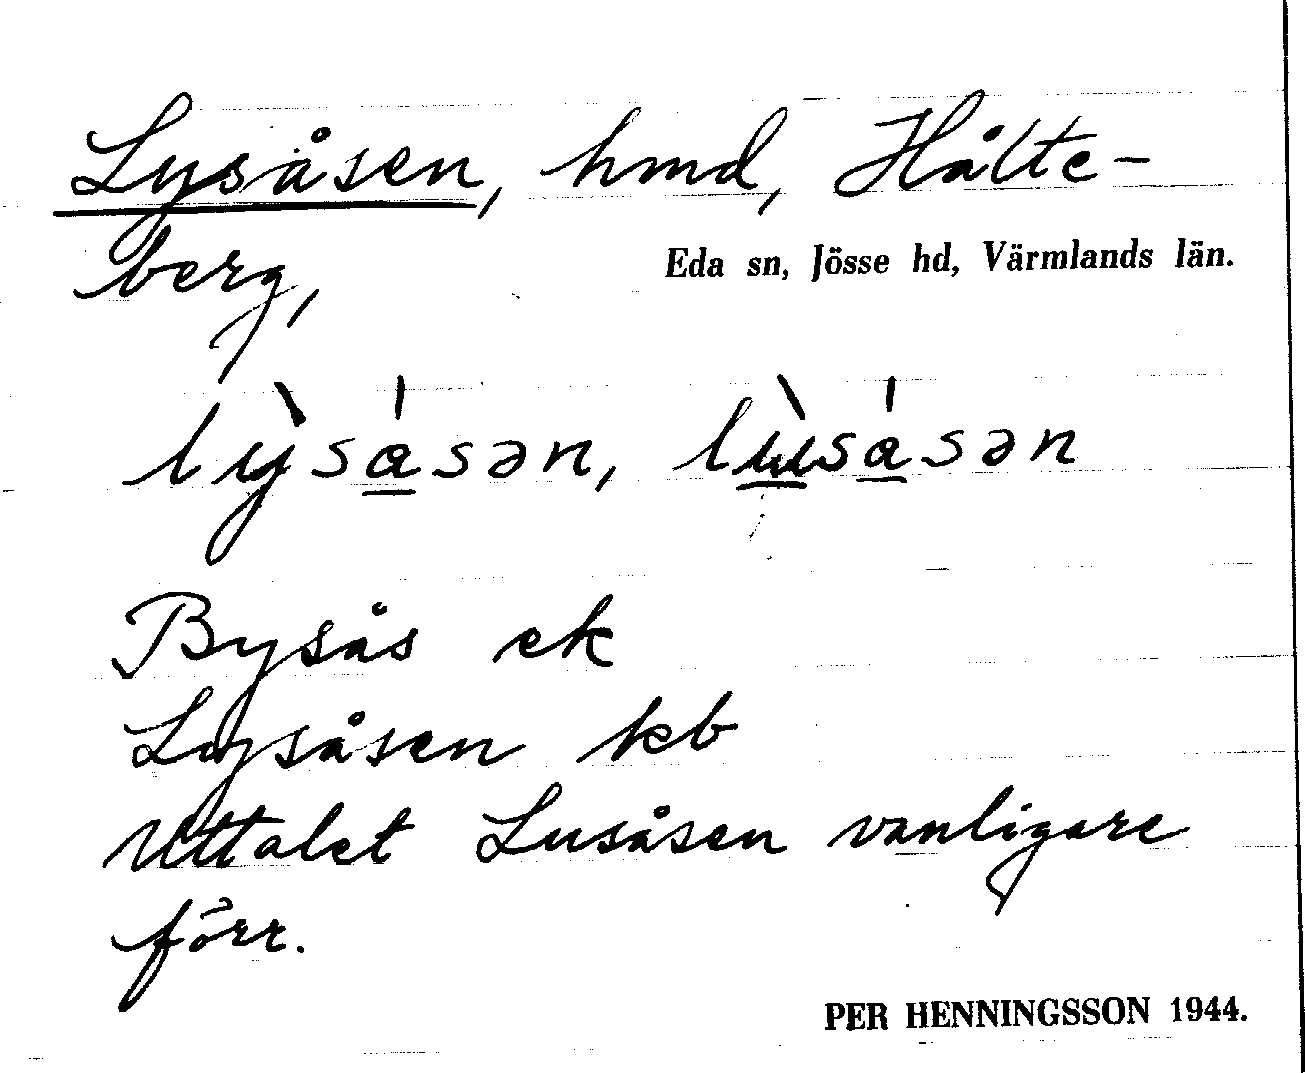 Lysåsen, hmd, Hålte-
berg,
Eda sn, Jösse hd, Värmlands län.
lỳsa̲̍sən, lù̲sa̲̍sən
Bysås ek
Lysåsen kb
Uttalet Lusåsen vanligare
förr.
PER HENNINGSSON 1944.